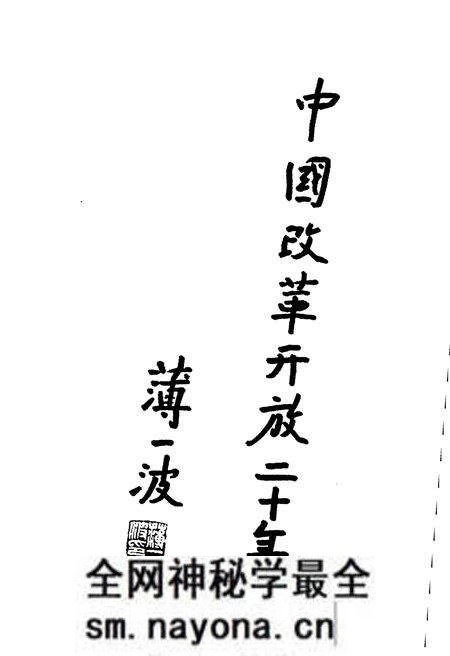 中國改革开放二十年
薄一波
薄一波印
全网神秘学最全
sm.nayona.cn